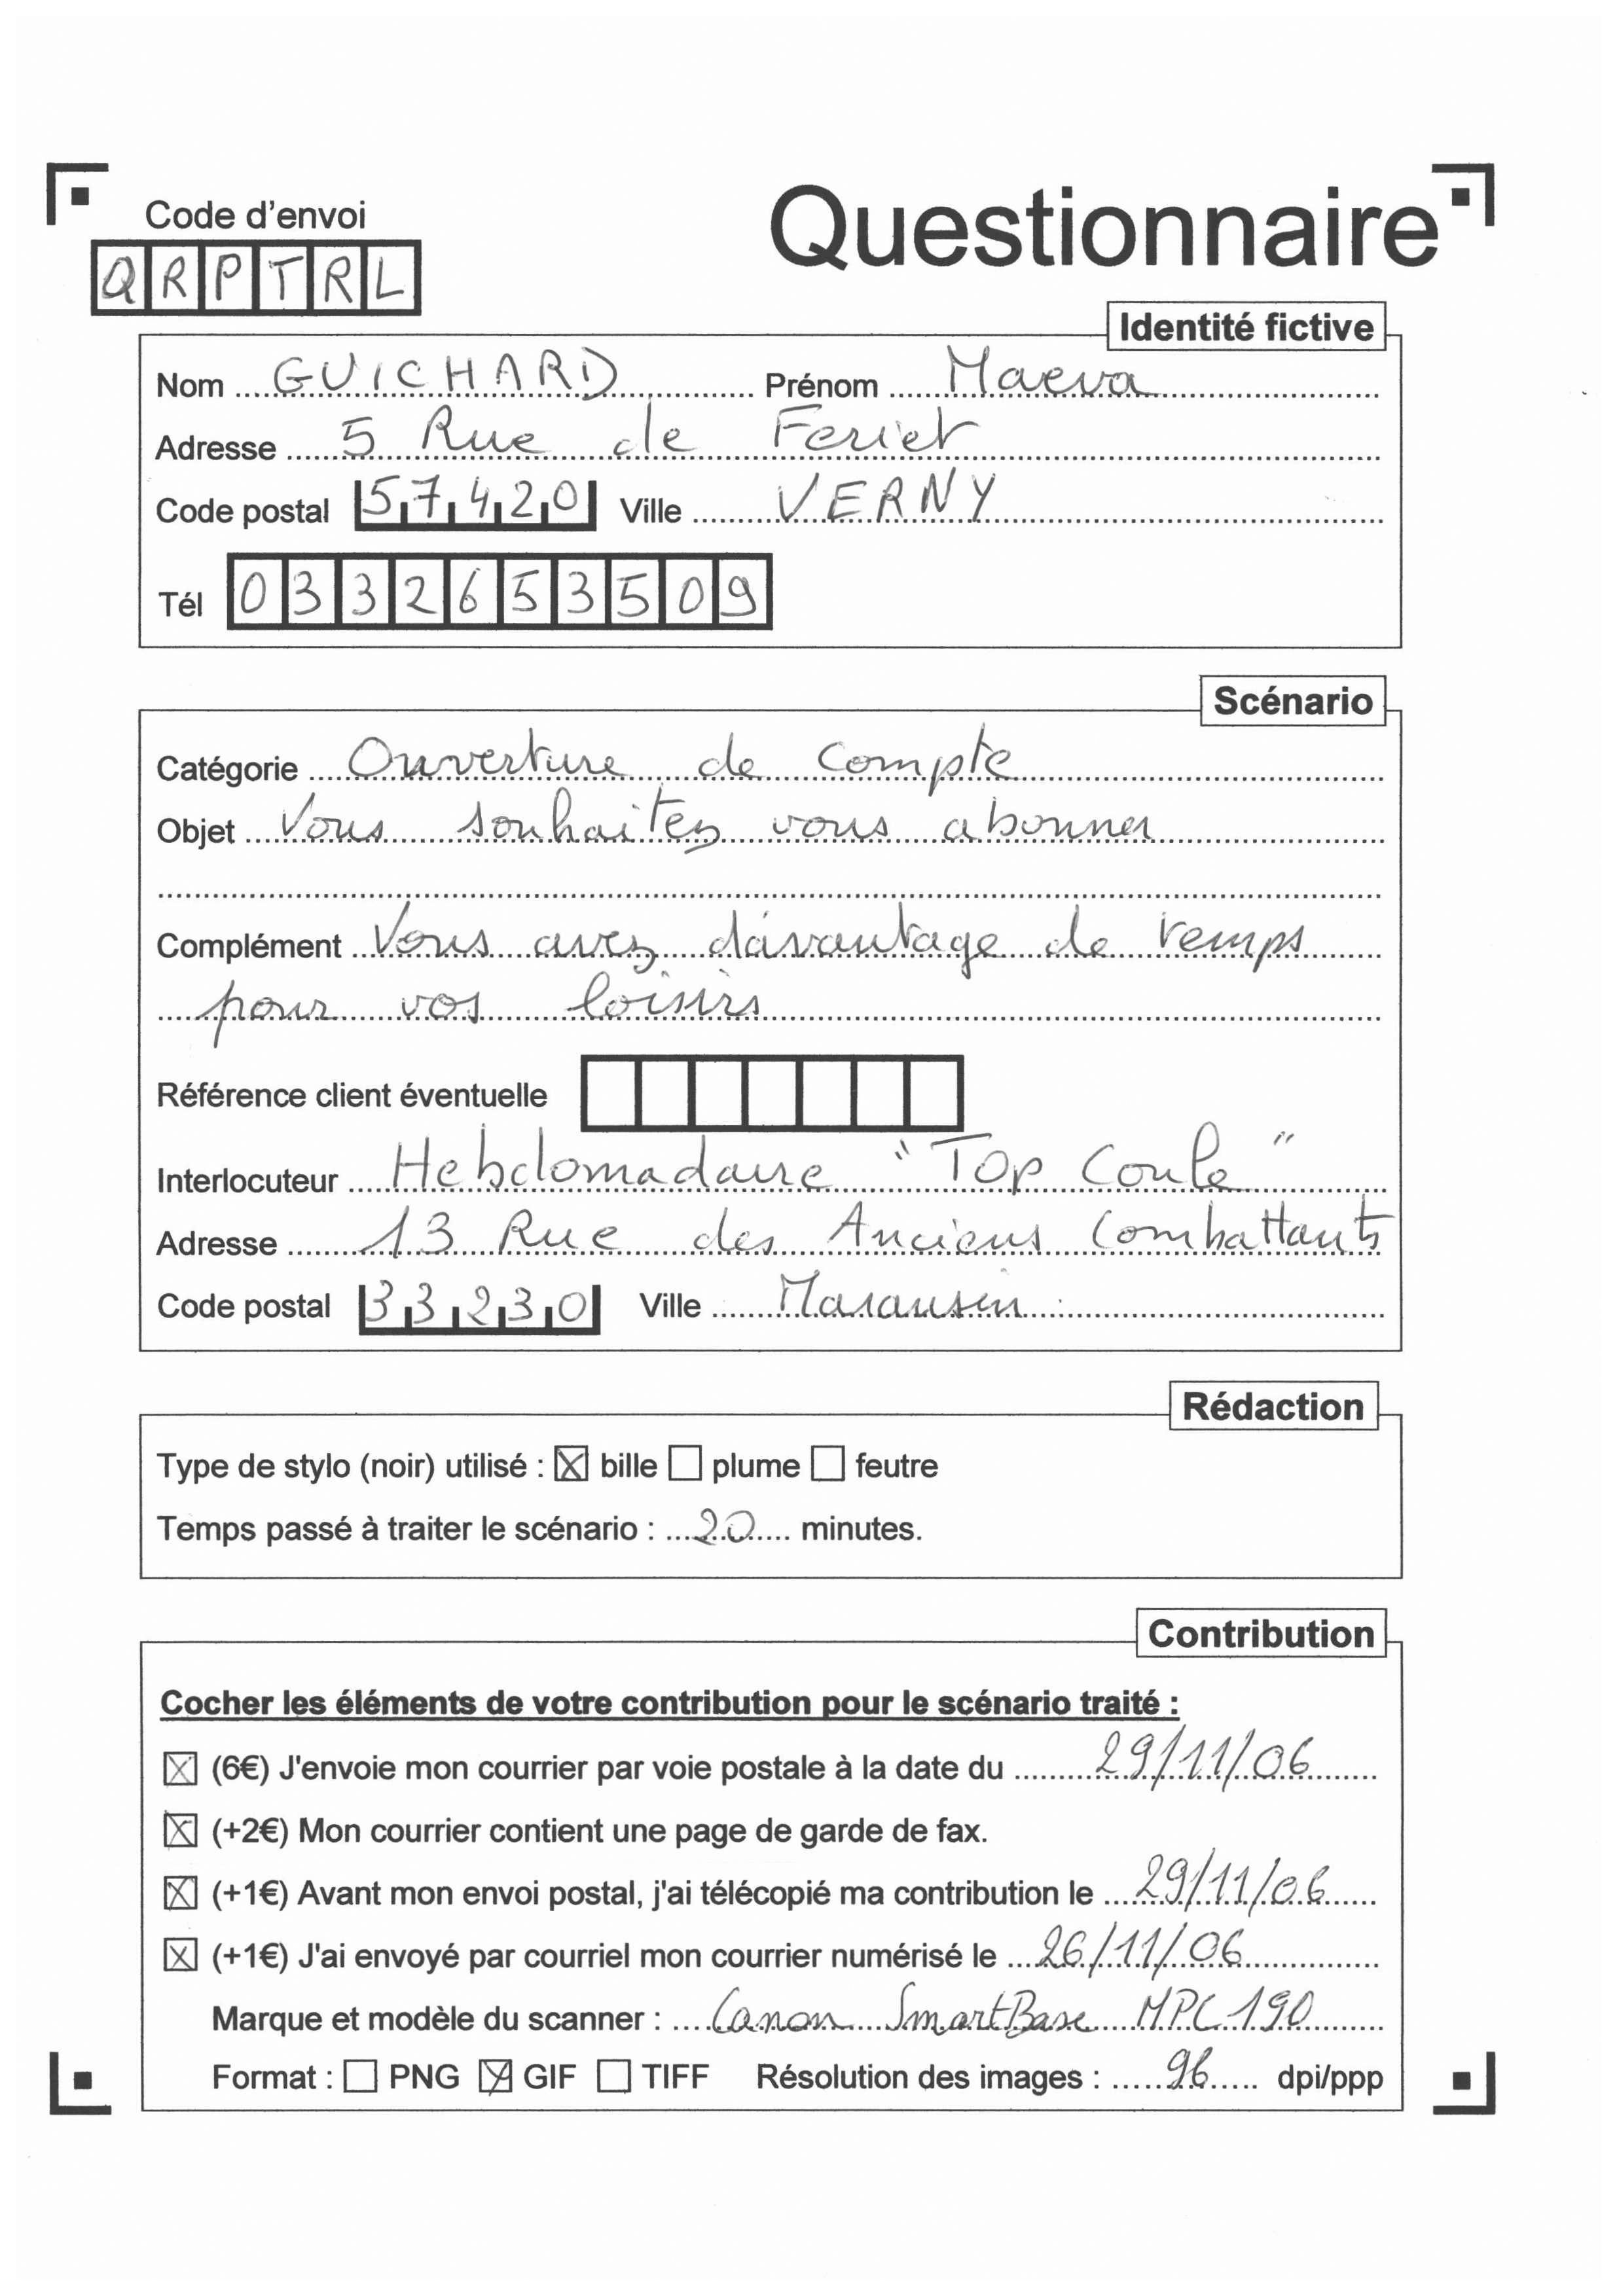 Code d'envoi
Questionnaire
QRPTRL
Identité fictive
Nom GUICHARD Prénom Maeva
Adresse 5 Rue de Feriet
Code postal 57420 Ville VERNY
Tél 0332653509
Scénario
Catégorie Ouverture de compte
Objet Vous souhaitez vous abonner
Complément Vous avez davantage de temps
pour vos loisirs
Référence client éventuelle
Interlocuteur Hebdomadaire "Top Coule"
Adresse 13 Rue des Anciens Combattants
Code postal 33230 Ville Maransin
Rédaction
Type de stylo (noir) utilisé : ☒ bille ☐ plume ☐ feutre
Temps passé à traiter le scénario : 20 minutes.
Contribution
Cocher les éléments de votre contribution pour le scénario traité :
☒ (6€) J'envoie mon courrier par voie postale à la date du 29/11/06
☒ (+2€) Mon courrier contient une page de garde de fax.
☒ (+1€) Avant mon envoi postal, j'ai télécopié ma contribution le 29/11/06
☒ (+1€) J'ai envoyé par courriel mon courrier numérisé le 26/11/06
Marque et modèle du scanner : Canon SmartBase MPC 190
Format : ☐ PNG ☒ GIF ☐ TIFF Résolution des images : 96 dpi/ppp